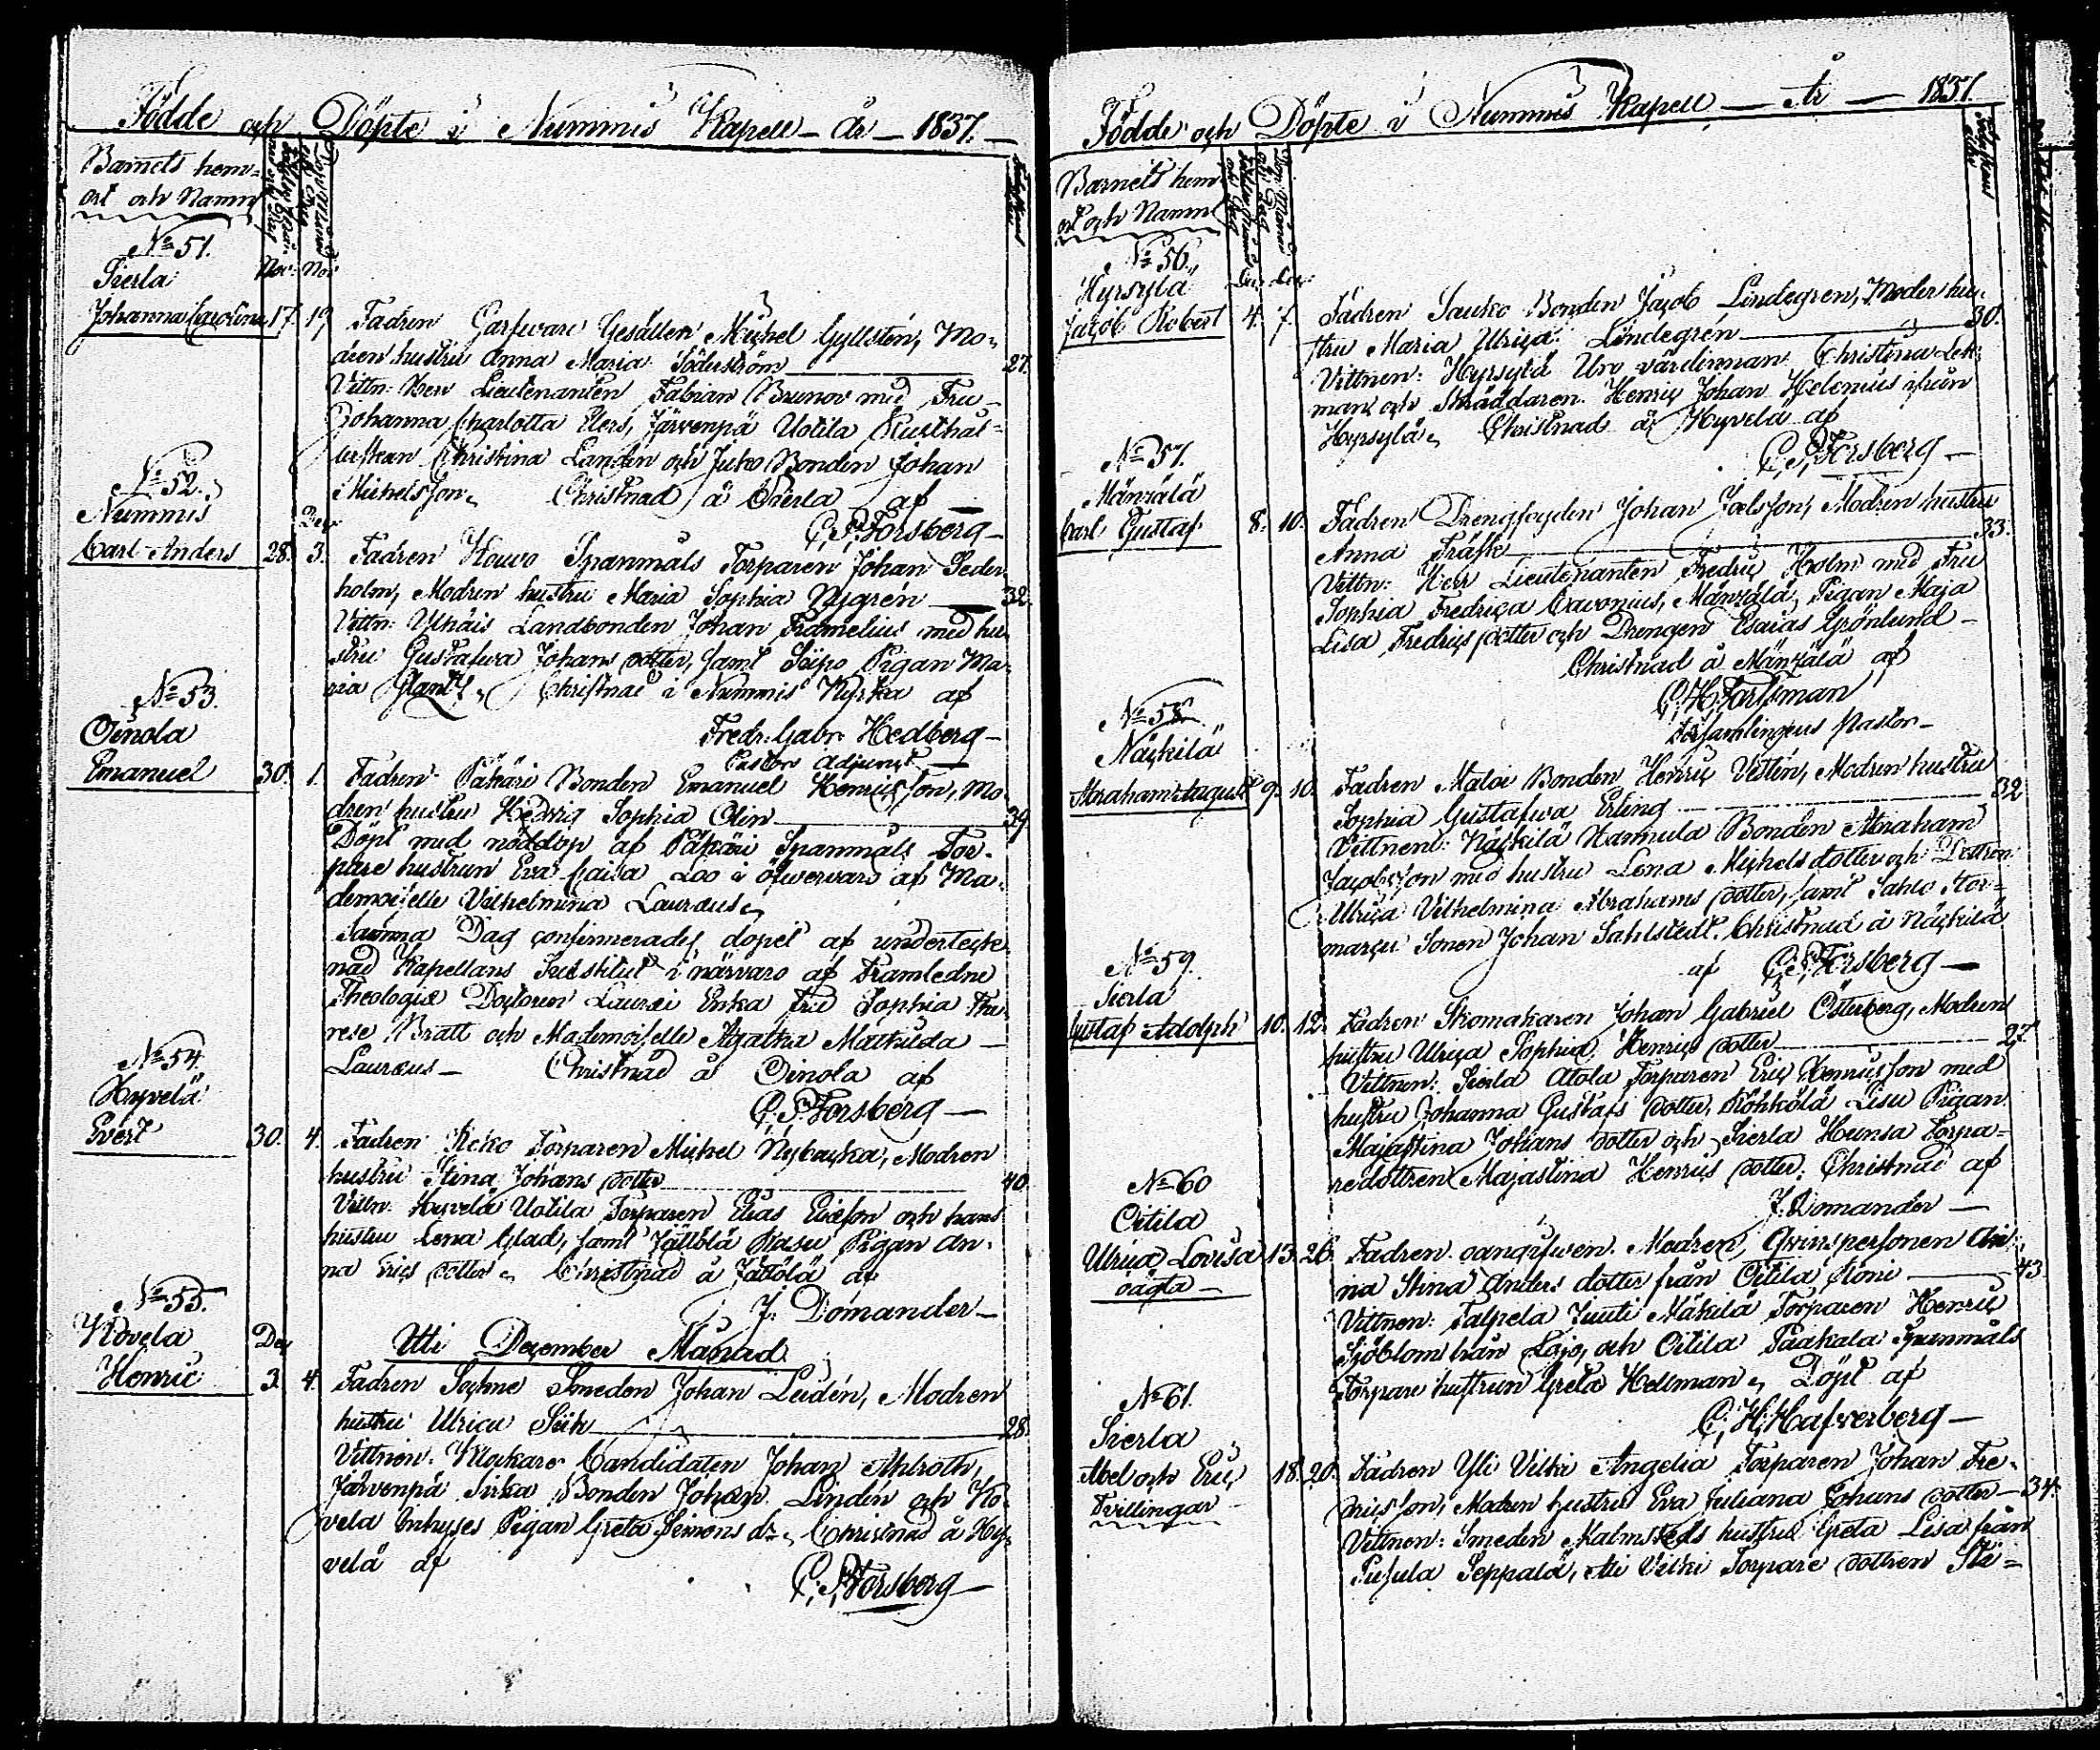 Födde och Döpte i Nummis Kapell - År - 1837.
Barnets hem-
ort och Namn
No 51.
Sierla
Nov. Nov.
Johanna Carolina 17. 19. Fadren Garfware Gesällen Michel Gyllstén, Mo-
dren hustru Anna Maria Söderström 27.
Vittn: Herr Lieutenanten Fabian Brunov med Fru
Johanna Charlotta Elers, Järvenpä Uotila Rusthål-
lerskan Christina Landén och Juko Bonden Johan
Michelsson. Christnad å Sierla af
C. P. Forsberg
No 52.
Nummis
Dec.
Carl Anders 28. 3. Fadren Kouvo Spanmåls Torparen Johan Seder-
holm, Modren hustru Maria Sophia Nygrén 32.
Vittn: Landbonden Johan Framelius med hu-
stru Gustafva Johans dotter, samt Pigan Ma-
ria Christnad i Nummis Kyrka af
Fredr. Gabr. Hedberg
Pastors Adjunct
No 53.
Oinola
Emanuel 30. 1. Fadren Päkäri Bonden Emanuel Henricsson, Mo-
dren hustru Hedvig Sophia Olin 39.
Döpt med nöddop af Päkäri Spanmåls Tor-
pare hustrun Eva Caisa i öfwervaro af Ma-
demoiselle Vilhelmina Lauraeus
Samma Dag confirmerades dopet af underteck-
nad Kapellans Substitut i närvaro af Framledne
Theologiæ Doctoren Lauraei Enka Fru Sophia The-
rese Bratt och Mademoiselle Agatha Mathilda
Lauræus - Christnad å Oinola af
C. P. Forsberg
No 54.
Hyvelä
Evert 30. 4. Fadren Torparen Michel Nybacka, Modren
hustru Stina Johans dotter 40.
Vittn: Hyvelä Uotila Torparen Elias Ericsson och hans
hustru Lena Glad, samt Jättölä Pigan An-
na Erics dotter. Christnad å Jättölä af
J. Domander
No 55.
Kovela
Dec.
Uti December Månad
Henric 3. 4. Fadren Smeden Johan Leidén, Modren
hustru Ulrica 28.
Vittnen: Klockare Candidaten Johan Ahlroth,
Järvenpä Sirka Bonden Johan Lindén och Ko-
vela Inhyses Pigan Greta Simons dr. Christnad å Hy-
velä af
C. P. Forsberg
Födde och Döpte i Nummis Kapell - År - 1837
Barnets hem
ort och Namn
No 56.
Hyrsylä
Dec. Dec.
Jacob Robert 4. 7. Fadren Sauko Bonden Jacob Lindegren, Moder hu-
stru Maria Ulrica Lindegrén 30.
Vittnen: Hyrsylä Uro värdinnan Christina Lek-
man och Skräddaren Henric Johan Helenius ifrån
Hyrsylä. Christnad å Hyvelä af
C. P. Forsberg
No 57.
Mänzälä
Carl Gustaf 8. 10. Fadren Drengfogden Johan Joelsson, Modren hustru
Anna Träsk 33.
Vittn: Herr Lieutenanten Fredric Holm med Fru
Sophia Fredrica Cavonius, Mänzälä Pigan Maja
Lisa Fredrics dotter och Drengen Esaias Grönlund
Christnad å Mänzälä af
C. H. Forssman
Församlingens Pastor
No 58.
Näckilä
Abraham August 9. 10. Fadren Bonden Henric Vestén, Modren hustru
Sophia Gustafva Erling 32
Vittnen: Näckilä Hannula Bonden Abraham
Jacobsson med hustru Lena Michels dotter och Dottren
Ulrica Vilhelmina Abrahams dotter, samt Stor-
Sonen Johan Sahlstedt. Christnad å Näckilä
af C. P. Forsberg
No 59.
Sierla
Gustaf Adolph 10. 12. Fadren Skomakaren Johan Gabriel Österberg, Modren
hustru Ulrica Sophia Henrics dotter 27
Vittnen: Sierla Torparen Eric Henricsson med
hustru Johanna Gustafs dotter, Röhkölä Pigan
Majastina Johans dotter och Sierla Torpa-
redottren Majastina Henrics dotter. Christnad af
J. Domander
No 60
Oitila
Ulrica Lovisa 13. 26. Fadren oangifven. Modren, Qvinspersonen
oägta
Stina Anders dotter från Oitila 43
Vittnen: Talpela Juuti Mäkilä Torparen Henric
Sjöblom från Lojo, och Oitila Paakala Spanmåls
Torpare hustrun Greta Hellman. Döpt af
C. H. Hafverberg
No 61.
Sierla
Abel och Eric 18. 20. Fadren Yli Vilki Angelia Torparen Johan Fre-
Tvillingar
dricsson, Modren hustru Eva Juliana Johans dotter 34.
Vittnen: Smeden Malmstedts hustru Greta Lisa från
Pusula Seppälä, Torpare dottren Sti-